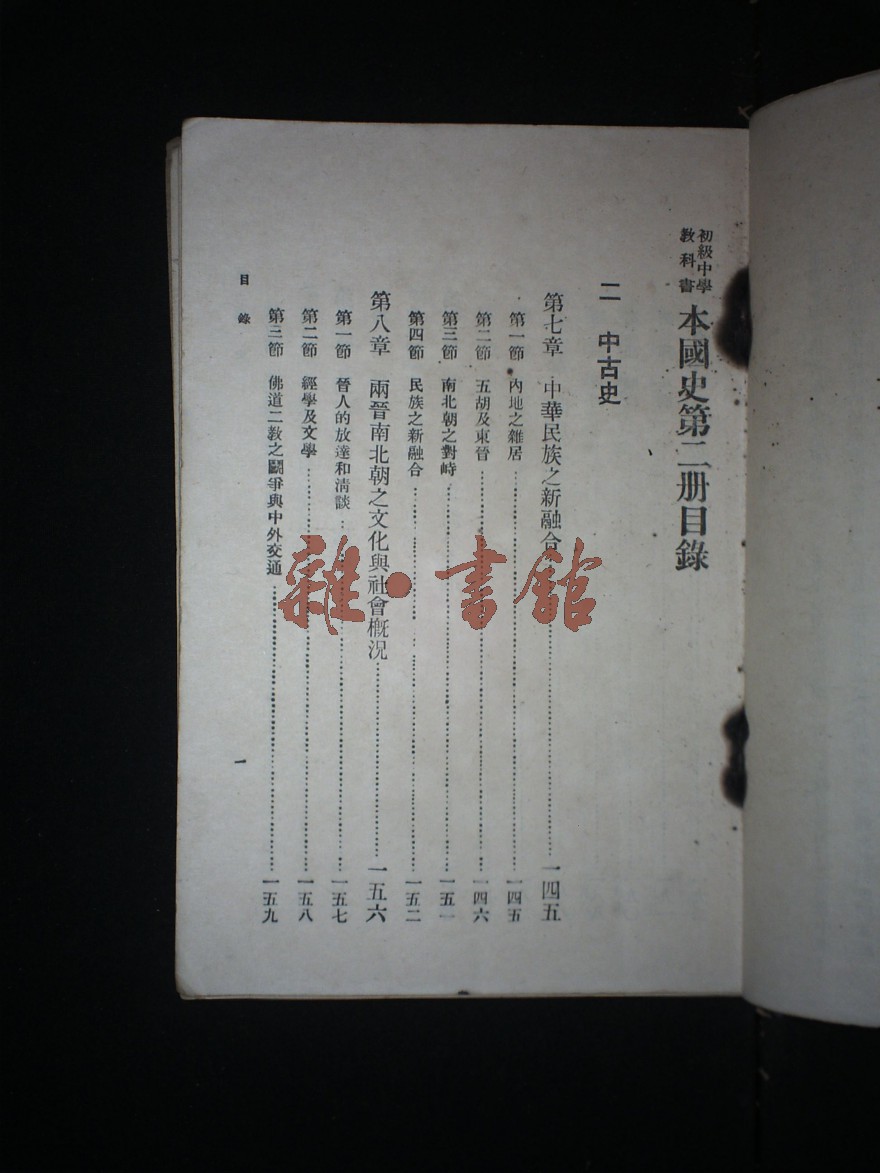 初級中學
教科書
本國史第二册目錄
二 中古史
第七章 中華民族之新融合 一四五
第一節 內地之雜居 一四五
第二節 五胡及東晉 一四六
第三節 南北朝之對峙 一五一
第四節 民族之新融合 一五二
第八章 兩晉南北朝之文化與社會概況 一五六
第一節 晉人的放達和淸談 一五七
第二節 經學及文學 一五八
第三節 佛道二敎之鬭爭與中外交通 一五九
目錄
一
雜·書館